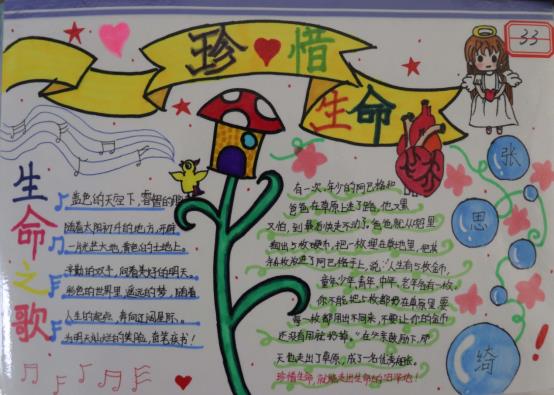 珍惜
生命
33
生命之歌
蓝色的天空下,
随着太阳初升的地方,开辟
一片光芒大地,黄色的土地上。
辛勤的双手,向着美好的明天。
彩色的世界里,遥远的梦,随着
人生的起点,奔向辽阔星际。
为明天灿烂的笑脸,
有一次,年少的阿巴格和
爸爸在草原上迷了路,他又累
又怕,到最后快走不动了,爸爸就从兜里
掏出5枚硬币,把一枚埋在草地里,把其
余4枚放进了阿巴格手上,说:"人生有5枚金币,
童年、少年、青年、中年、老年各有一枚。
你不能把5枚都扔在草原里,要
每一枚都用出不同来,不要让你的金币
还没有用就扔掉。"在父亲鼓励下,那
天也走出了草原,成了一名优秀船长。
珍惜生命,就能走出生命的沼泽地!
张
思
绮